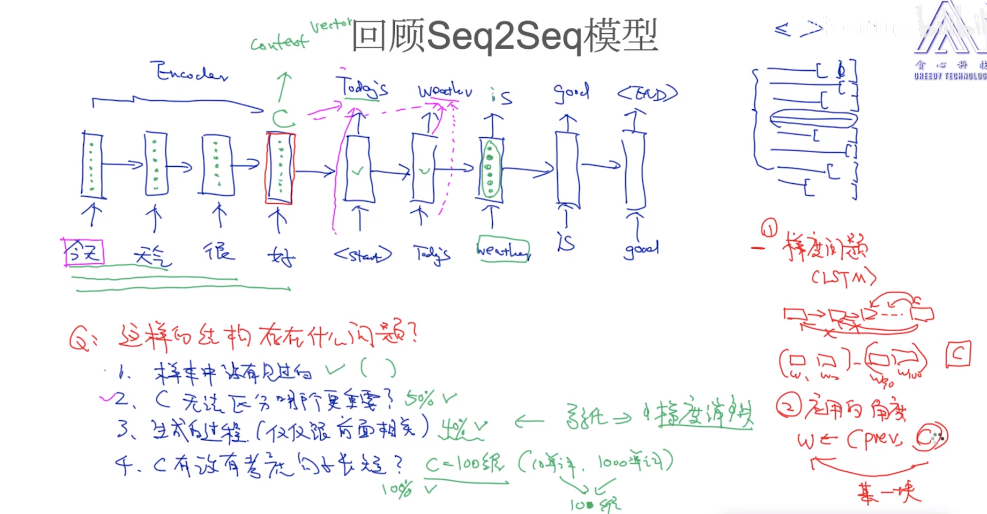 回顾Seq2Seq模型
context vector
< >
贪心科技
GREEDY TECHNOLOGY
Encoder
C
Today's
weather
is
good
<END>
今天
天气
很
好
<start>
Today's
weather
is
good
Q: 这样的结构存在什么问题?
1、样本中没有见过的 ( )
2、C 无法区分哪个更重要? 50%
3、生成的过程 (仅仅跟前面相关) 40% ← ⇒ 梯度消失
4、C有没有考虑句子长短? C=100维 (10单词, 1000单词)
10%
100维
① 梯度问题
(LSTM)
C
② 应用的角度
w ← (prev, C)
某一块